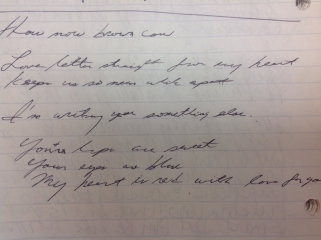 How now brown cow
Love letters straight from my heart
Keeps us so near while apart
I'm writing you something else.
Your lips are sweet
Your eyes are blue
My heart is red with love for you